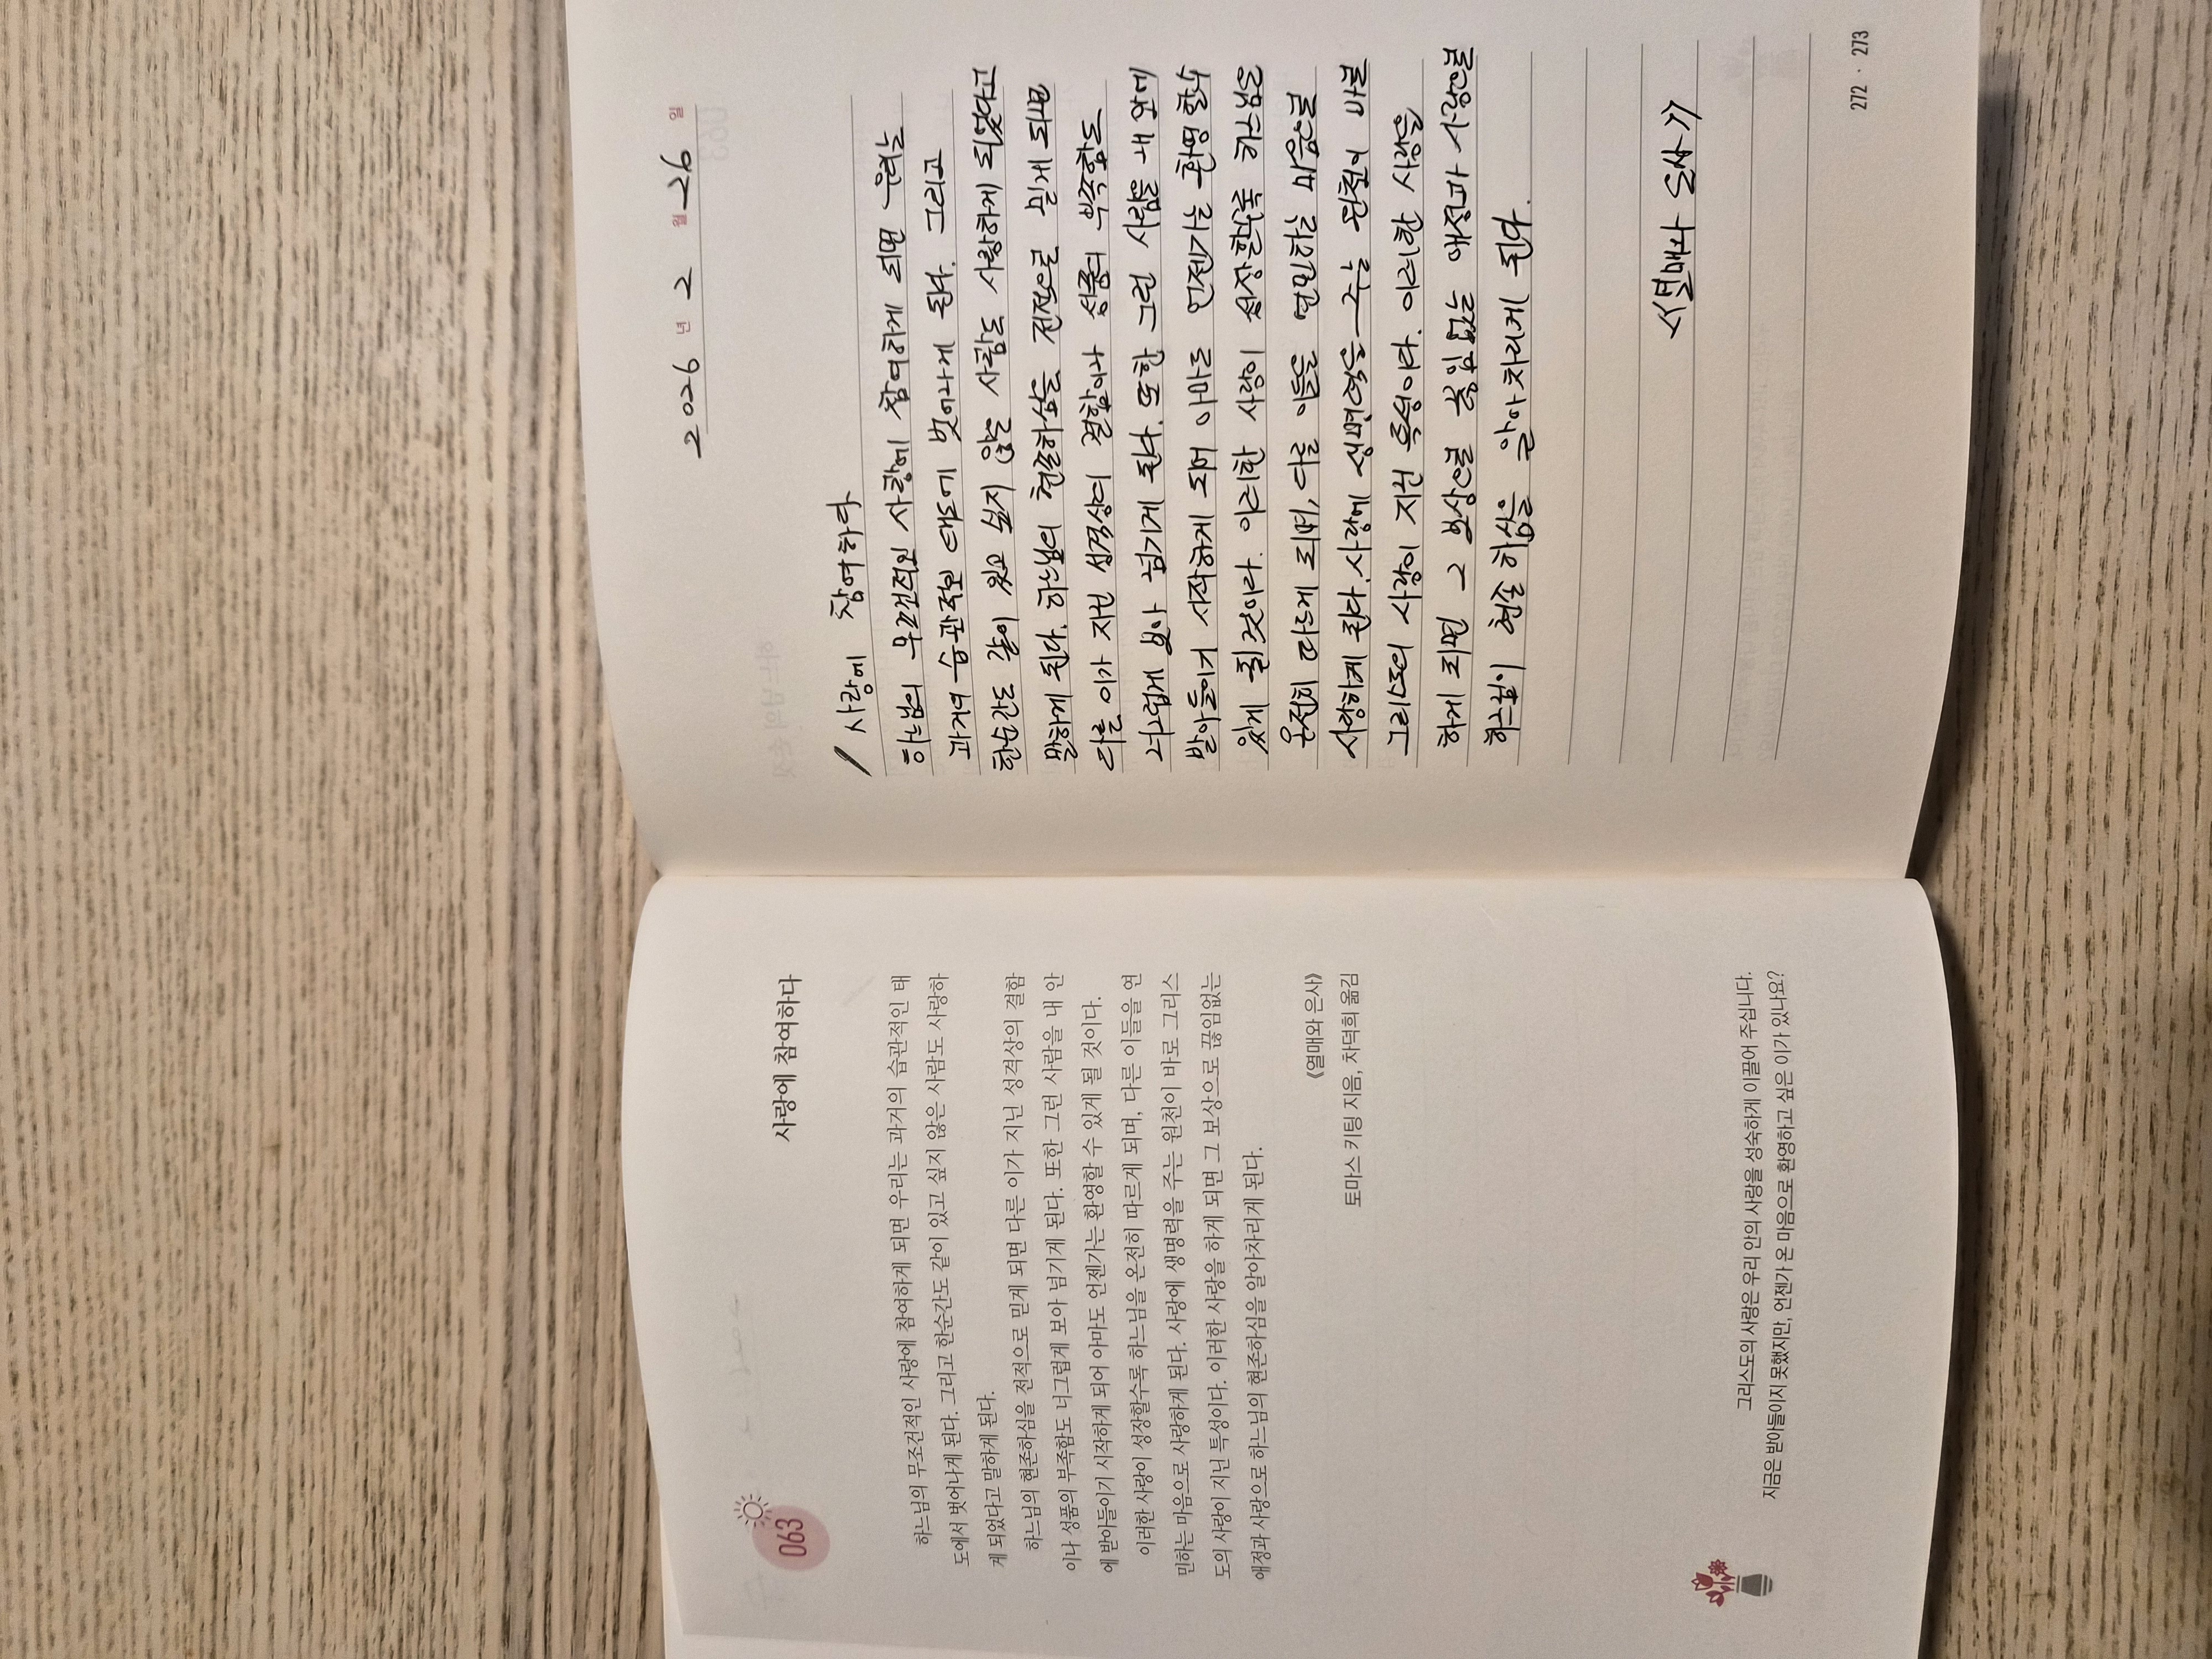 063
사랑에 참여하다
하느님의 무조건적인 사랑에 참여하게 되면 우리는 과거의 습관적인 태
도에서 벗어나게 된다. 그리고 한순간도 같이 있고 싶지 않은 사람도 사랑하
게 되었다고 말하게 된다.
하느님의 현존하심을 전적으로 믿게 되면 다른 이가 지닌 성격상의 결함
이나 성품의 부족함도 너그럽게 보아 넘기게 된다. 또한 그런 사람을 내 안
에 받아들이기 시작하게 되어 아마도 언젠가는 환영할 수 있게 될 것이다.
이러한 사랑이 성장할수록 하느님을 온전히 따르게 되며, 다른 이들을 연
민하는 마음으로 사랑하게 된다. 사랑에 생명력을 주는 원천이 바로 그리스
도의 사랑이 지닌 특성이다. 이러한 사랑을 하게 되면 그 보상으로 끊임없는
애정과 사랑으로 하느님의 현존하심을 알아차리게 된다.
《열매와 은사》
토마스 키팅 지음, 차덕희 옮김
그리스도의 사랑은 우리 안의 사랑을 성숙하게 이끌어 주십니다.
지금은 받아들이지 못했지만, 언젠가 온 마음으로 환영하고 싶은 이가 있나요?
2026 년 2 월 26 일
/ 사랑에 참여하다
하느님의 무조건적인 사랑에 참여하게 되면 우리는
과거의 습관적인 태도에 벗어나게 된다. 그리고
한순간도 같이 있고 싶지 않은 사람도 사랑하게 되었다고
말하게 된다. 하느님의 현존하심을 전적으로 믿게 되면
다른 이가 지닌 성격상의 결함이나 성품의 부족함도
너그럽게 보아 넘기게 된다. 또한 그런 사람을 내 안에
받아들이기 시작하게 되어 아마도 언젠가는 환영할수
있게 될것이다. 이러한 사랑이 성장할수록 하느님을
온전히 따르게 되며, 다른 이들을 연민하는 마음으로
사랑하게 된다. 사랑에 생명력을 주는 원천이 바로
그리스도의 사랑이 지닌 특성이다. 이러한 사랑을
하게 되면 그 보상으로 끊임없는 애정과 사랑으로
하느님이 현존하심을 알아차리게 된다.
<열매와 은사>
272 · 273